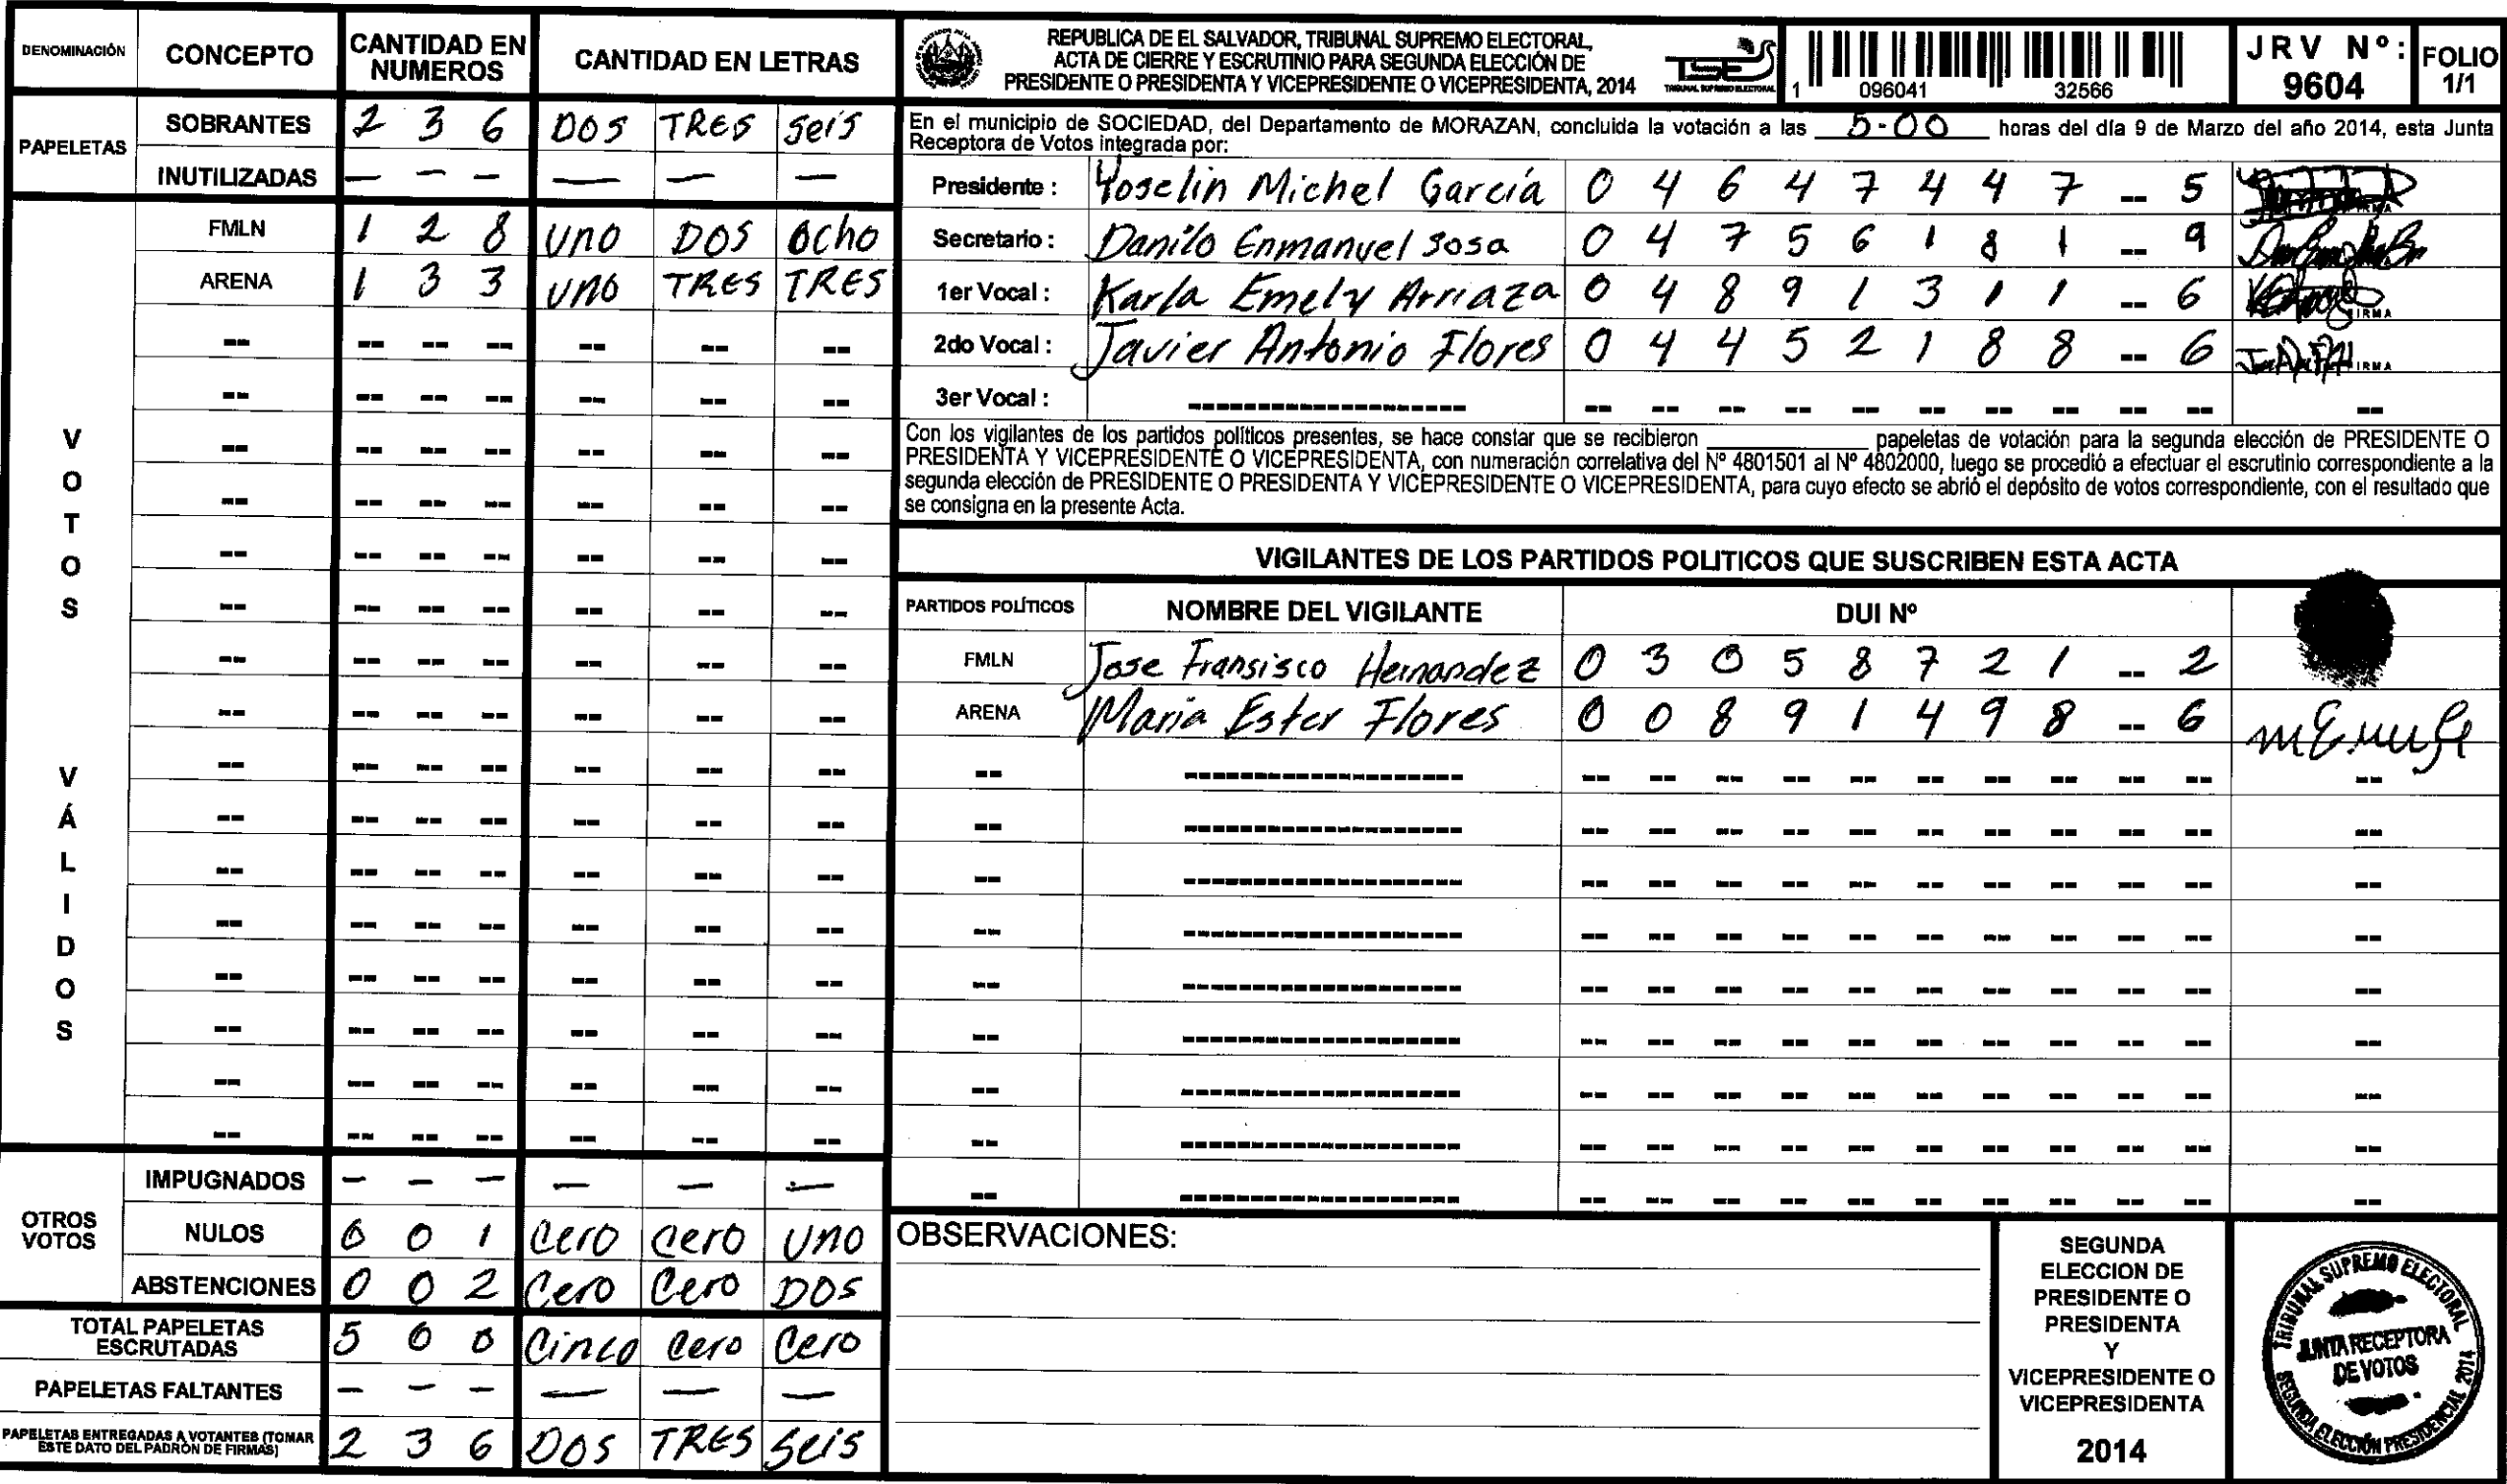 DENOMINACIÓN CONCEPTO CANTIDAD EN NUMEROS CANTIDAD EN LETRAS
PAPELETAS
SOBRANTES 2 3 6 DOS TRES Seis
INUTILIZADAS — — — — — —
VOTOS VÁLIDOS
FMLN 1 2 8 UNO DOS OCho
ARENA 1 3 3 UNO TRES TRES
OTROS VOTOS
IMPUGNADOS — — — — — —
NULOS 0 0 1 Cero Cero UNO
ABSTENCIONES 0 0 2 Cero Cero DOS
TOTAL PAPELETAS ESCRUTADAS 5 0 0 Cinco Cero Cero
PAPELETAS FALTANTES — — — — — —
PAPELETAS ENTREGADAS A VOTANTES (TOMAR ESTE DATO DEL PADRÓN DE FIRMAS) 2 3 6 DOS TRES Seis
REPUBLICA DE EL SALVADOR, TRIBUNAL SUPREMO ELECTORAL,
ACTA DE CIERRE Y ESCRUTINIO PARA SEGUNDA ELECCIÓN DE
PRESIDENTE O PRESIDENTA Y VICEPRESIDENTE O VICEPRESIDENTA, 2014
TSE
TRIBUNAL SUPREMO ELECTORAL
1 096041 32566
JRV Nº: 9604
FOLIO 1/1
En el municipio de SOCIEDAD, del Departamento de MORAZAN, concluida la votación a las 5-00 horas del día 9 de Marzo del año 2014, esta Junta
Receptora de Votos integrada por:
Presidente : Yoselin Michel García 0 4 6 4 7 4 4 7 -- 5
Secretario : Danilo Enmanuel Sosa 0 4 7 5 6 1 8 1 -- 9
1er Vocal : Karla Emely Arriaza 0 4 8 9 1 3 1 1 -- 6 FIRMA
2do Vocal : Javier Antonio Flores 0 4 4 5 2 1 8 8 -- 6 FIRMA
3er Vocal :
Con los vigilantes de los partidos políticos presentes, se hace constar que se recibieron ________ papeletas de votación para la segunda elección de PRESIDENTE O
PRESIDENTA Y VICEPRESIDENTE O VICEPRESIDENTA, con numeración correlativa del Nº 4801501 al Nº 4802000, luego se procedió a efectuar el escrutinio correspondiente a la
segunda elección de PRESIDENTE O PRESIDENTA Y VICEPRESIDENTE O VICEPRESIDENTA, para cuyo efecto se abrió el depósito de votos correspondiente, con el resultado que
se consigna en la presente Acta.
VIGILANTES DE LOS PARTIDOS POLITICOS QUE SUSCRIBEN ESTA ACTA
PARTIDOS POLÍTICOS NOMBRE DEL VIGILANTE DUI Nº
FMLN Jose Fransisco Hernandez 0 3 0 5 8 7 2 1 -- 2
ARENA Maria Ester Flores 0 0 8 9 1 4 9 8 -- 6
OBSERVACIONES:
SEGUNDA
ELECCION DE
PRESIDENTE O
PRESIDENTA
Y
VICEPRESIDENTE O
VICEPRESIDENTA
2014
TRIBUNAL SUPREMO ELECTORAL
JUNTA RECEPTORA
DE VOTOS
SEGUNDA ELECCIÓN PRESIDENCIAL 2014